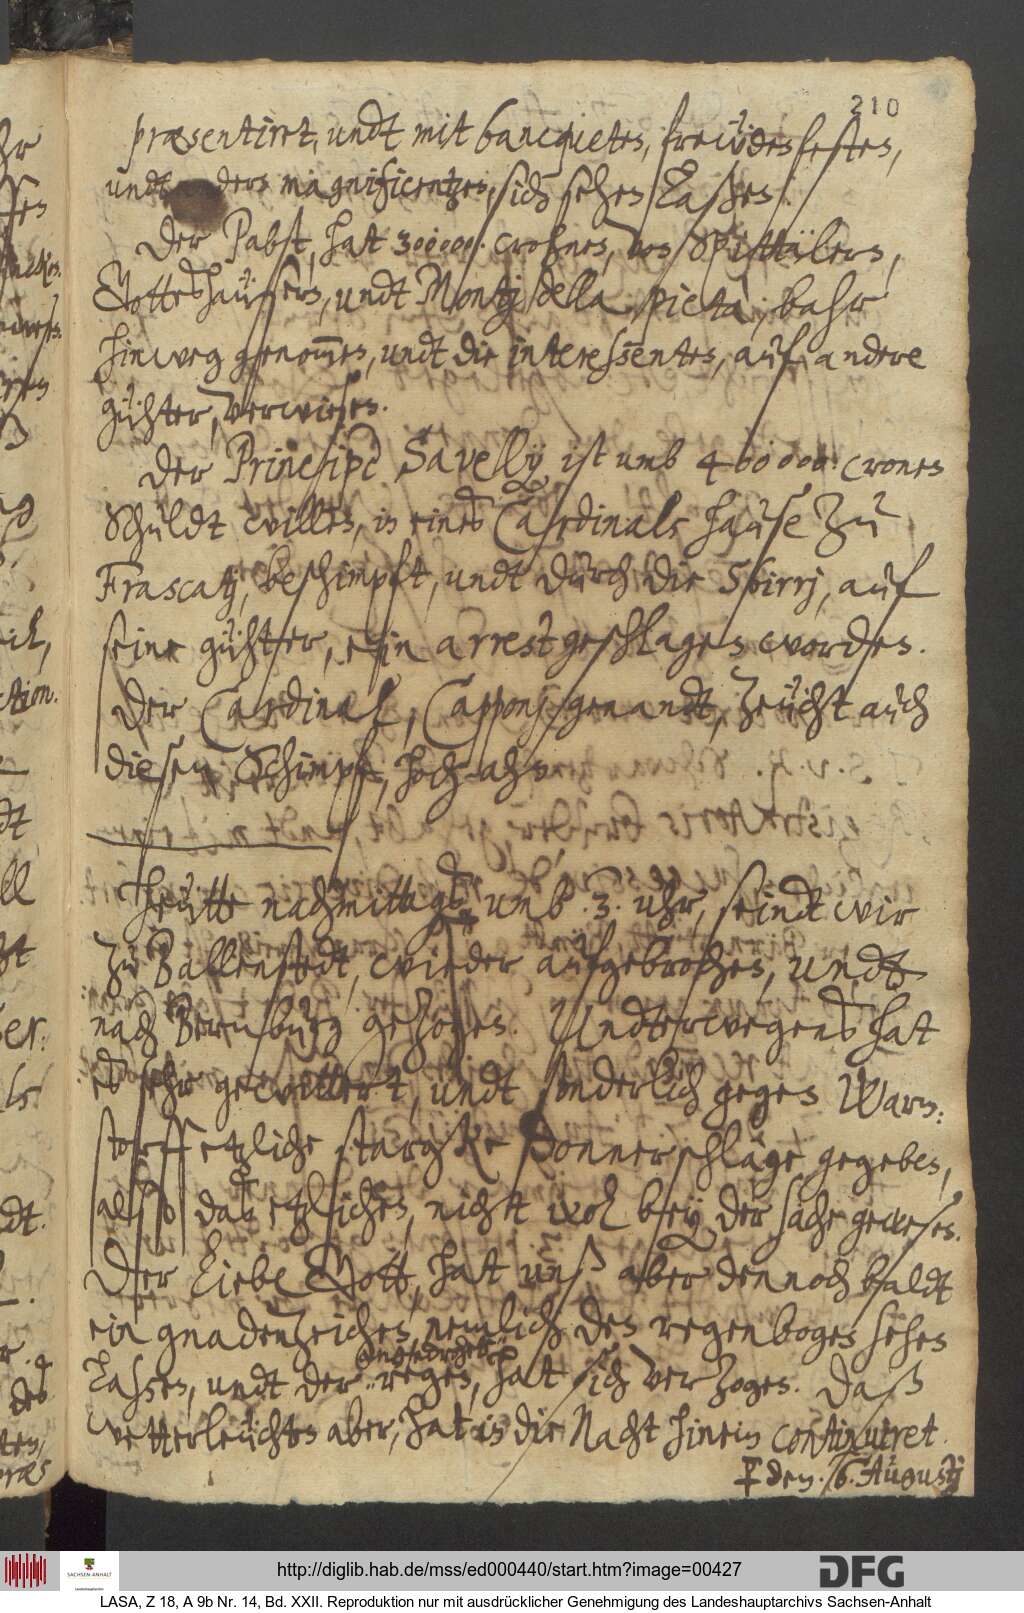 210
præsentiret, undt mit bancqueten, freüdenfesten,
undt andern magnificentzen, sich sehen laßen.
Der Pabst, hat 300000 crohnen, von Spittälern,
Gotteshäüsern, undt Montj della pietà, bahr
hinweg genommen, undt die interessenten, auf andere
gühter, verwiesen.
Der Principe Savellÿ ist umb 400000 cronen
Schuldt willen, in eines Cardinals hause zu
Frascatj, beschimpft, undt durch die Sbirrj, auf
seine gühter, ein arrest geschlagen worden.
Der Cardinal, Capponj genandt, zeücht auch
diesen Schimpf, hoch ahn.
Heütte nachmittags umb 3. uhr, seindt wir
zu Ballenstedt, wieder aufgebrochen, undt
nach Bernburg gezogen. Undterwegens hat
es sehr gewittert, undt sonderlich gegen Warm:
storff etzliche starcke Donnerschläge gegeben,
also das etzlichen, nicht wol bey der sache gewesen.
Der liebe Gott, hat unß aber dennoch baldt
ein gnadenzeichen, nemlich den regenbogen sehen
laßen, undt der reges, hatt sich verzogen. Daß
wetterleüchten aber, hat in die Nacht hinein continuiret.
den. 6. Augustj
http://diglib.hab.de/mss/ed000440/start.htm?image=00427
DFG
SACHSEN-ANHALT
LASA, Z 18, A 9b Nr. 14, Bd. XXII. Reproduktion nur mit ausdrücklicher Genehmigung des Landeshauptarchivs Sachsen-Anhalt